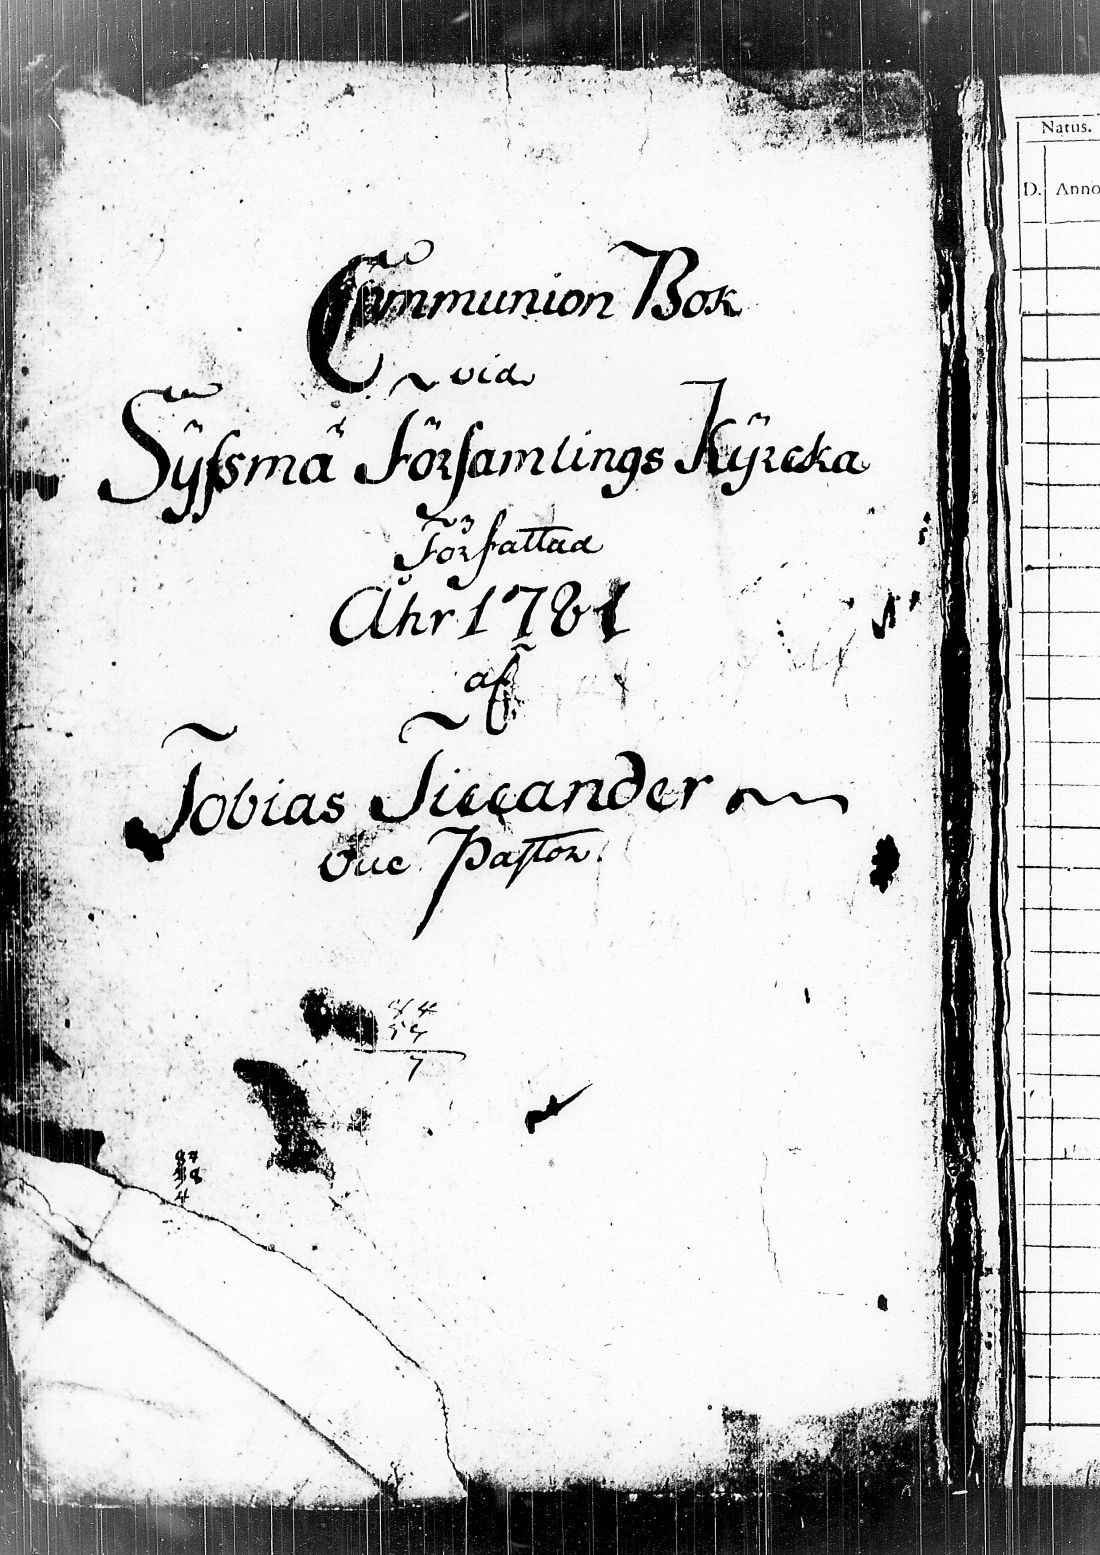 Communion Bok
vid
Sÿssmä Församlings Kÿrcka
Författad
Åhr 1781
af
Tobias Ticcander
Vice Pastor.
84
7
87
4
Natus.
D. Anno